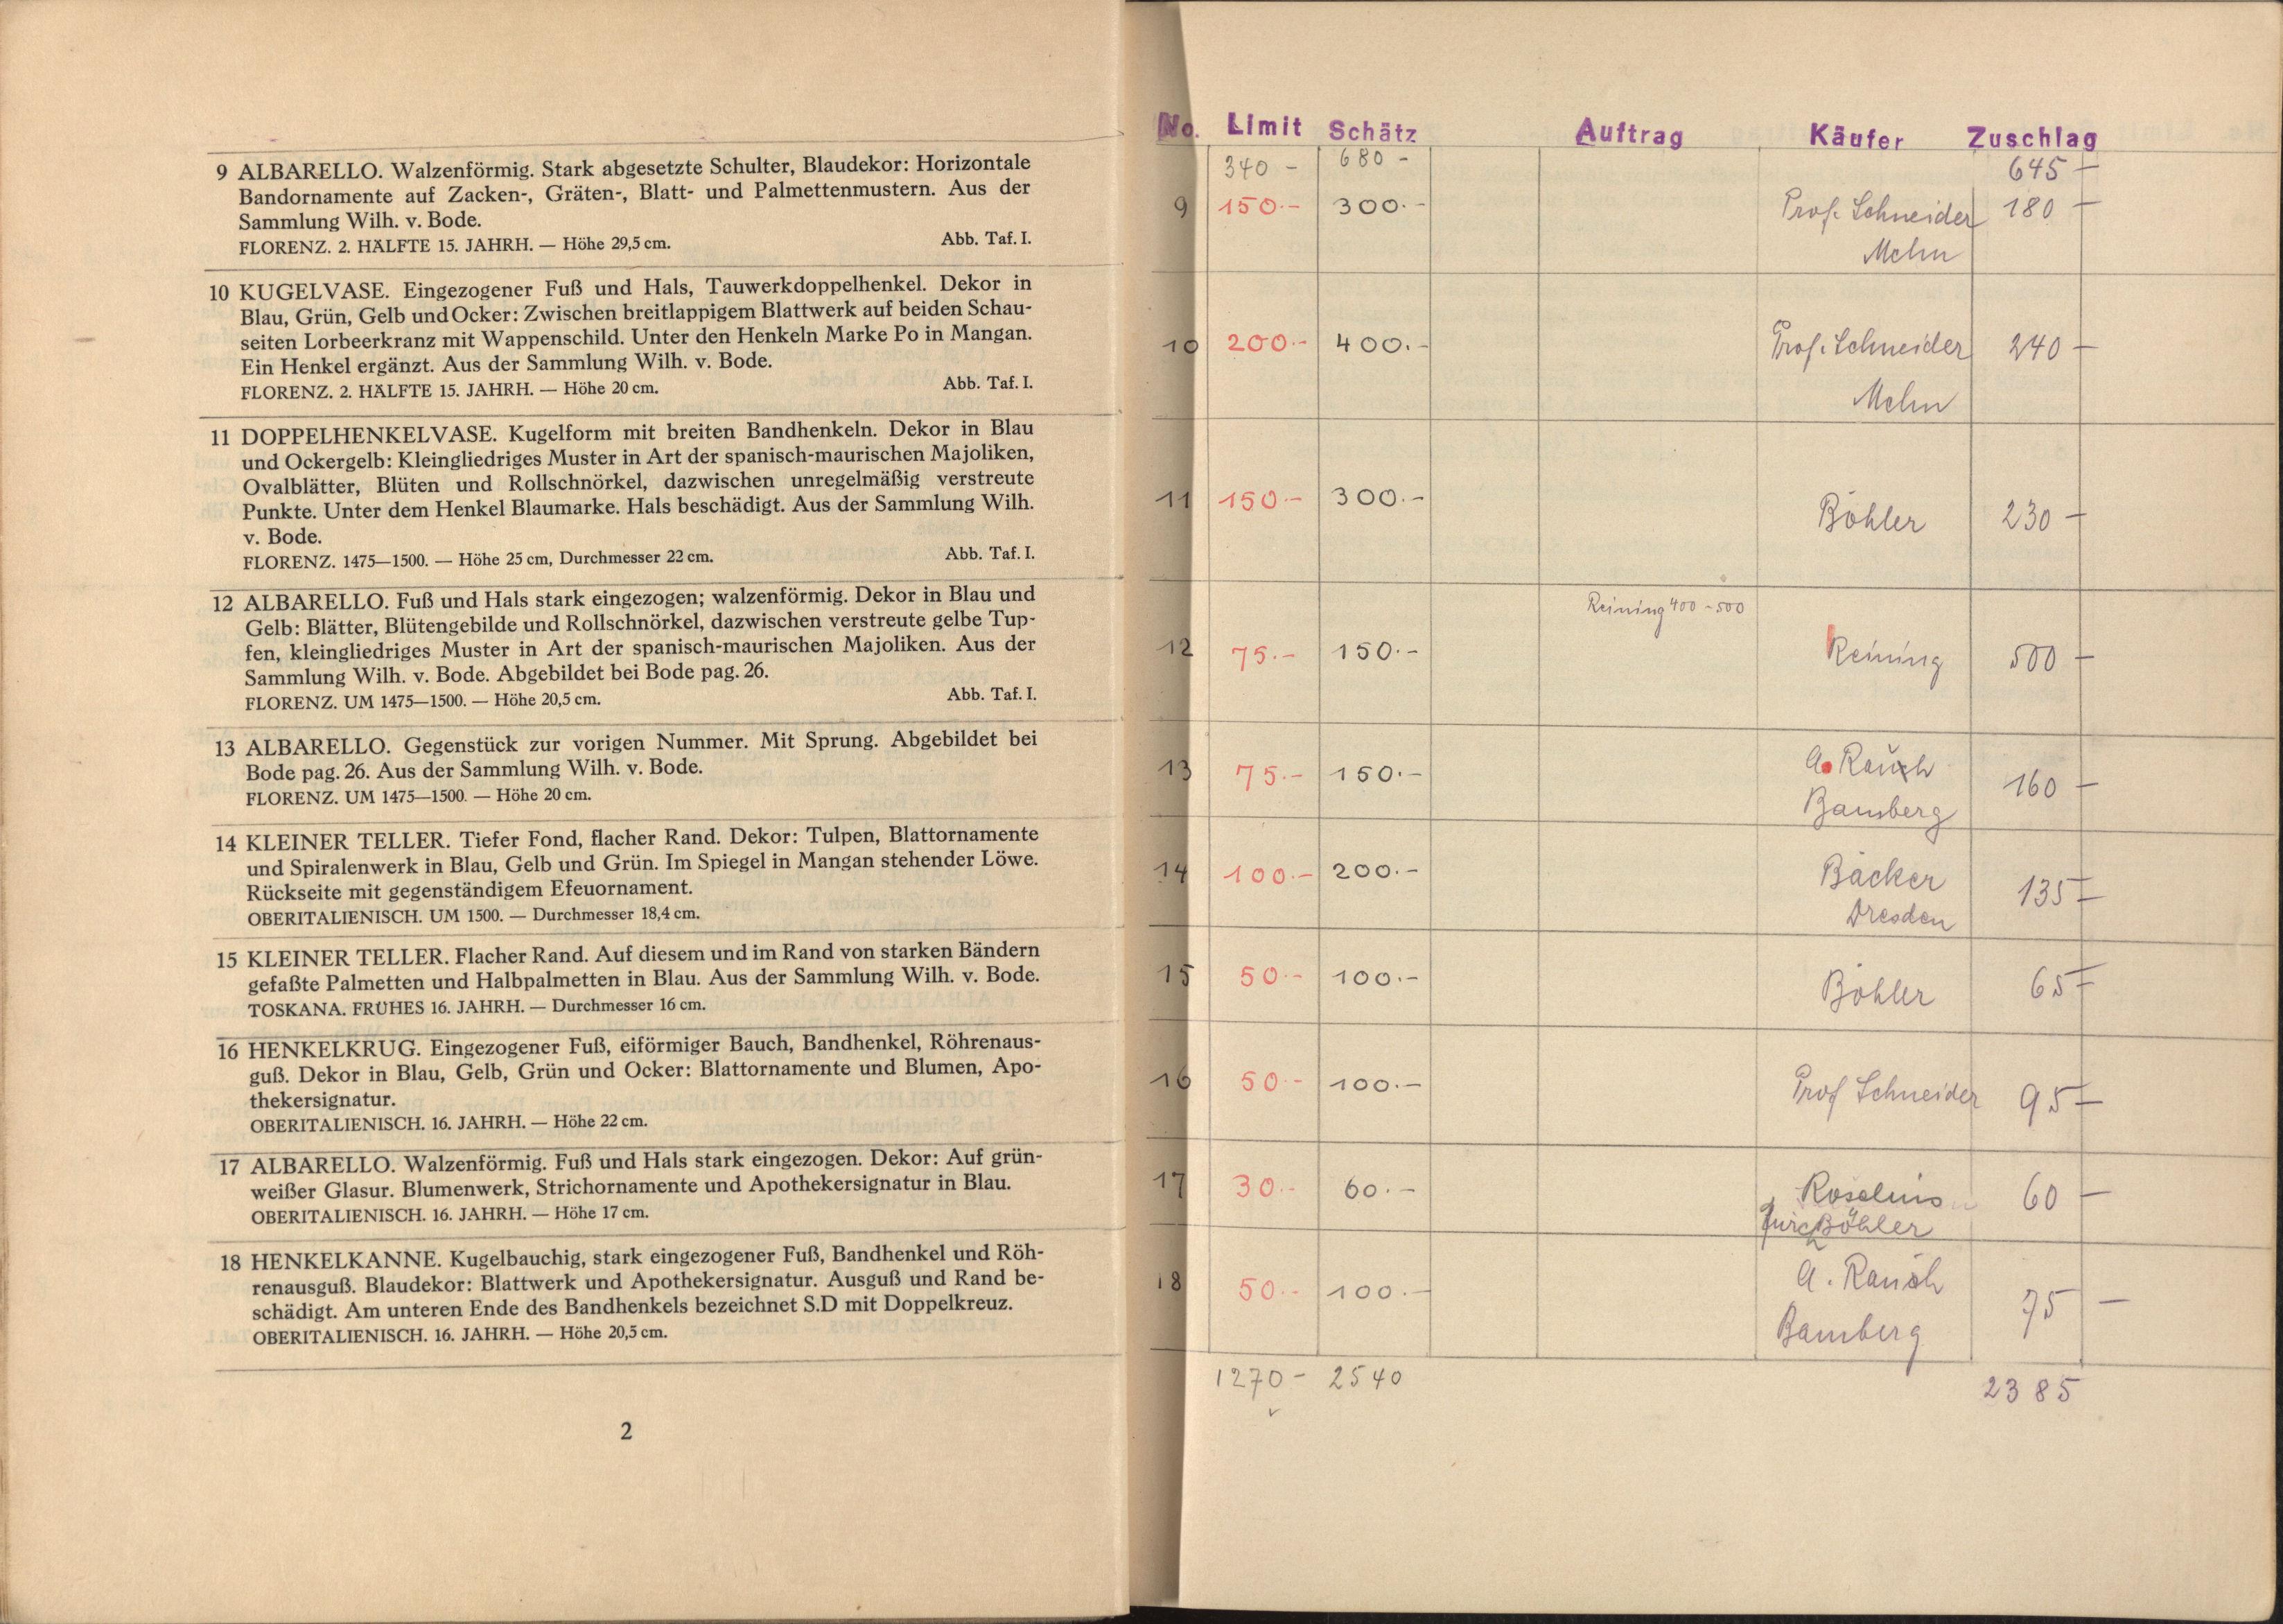 9 ALBARELLO. Walzenförmig. Stark abgesetzte Schulter, Blaudekor: Horizontale
Bandornamente auf Zacken-, Gräten-, Blatt- und Palmettenmustern. Aus der
Sammlung Wilh. v. Bode.
FLORENZ. 2. HÄLFTE 15. JAHRH. — Höhe 29,5 cm. Abb. Taf. I.
10 KUGELVASE. Eingezogener Fuß und Hals, Tauwerkdoppelhenkel. Dekor in
Blau, Grün, Gelb und Ocker: Zwischen breitlappigem Blattwerk auf beiden Schau-
seiten Lorbeerkranz mit Wappenschild. Unter den Henkeln Marke Po in Mangan.
Ein Henkel ergänzt. Aus der Sammlung Wilh. v. Bode.
FLORENZ. 2. HÄLFTE 15. JAHRH. — Höhe 20 cm. Abb. Taf. I.
11 DOPPELHENKELVASE. Kugelform mit breiten Bandhenkeln. Dekor in Blau
und Ockergelb: Kleingliedriges Muster in Art der spanisch-maurischen Majoliken,
Ovalblätter, Blüten und Rollschnörkel, dazwischen unregelmäßig verstreute
Punkte. Unter dem Henkel Blaumarke. Hals beschädigt. Aus der Sammlung Wilh.
v. Bode.
FLORENZ. 1475—1500. — Höhe 25 cm, Durchmesser 22 cm. Abb. Taf. I.
12 ALBARELLO. Fuß und Hals stark eingezogen; walzenförmig. Dekor in Blau und
Gelb: Blätter, Blütengebilde und Rollschnörkel, dazwischen verstreute gelbe Tup-
fen, kleingliedriges Muster in Art der spanisch-maurischen Majoliken. Aus der
Sammlung Wilh. v. Bode. Abgebildet bei Bode pag. 26.
FLORENZ. UM 1475—1500. — Höhe 20,5 cm. Abb. Taf. I.
13 ALBARELLO. Gegenstück zur vorigen Nummer. Mit Sprung. Abgebildet bei
Bode pag. 26. Aus der Sammlung Wilh. v. Bode.
FLORENZ. UM 1475—1500. — Höhe 20 cm.
14 KLEINER TELLER. Tiefer Fond, flacher Rand. Dekor: Tulpen, Blattornamente
und Spiralenwerk in Blau, Gelb und Grün. Im Spiegel in Mangan stehender Löwe.
Rückseite mit gegenständigem Efeuornament.
OBERITALIENISCH. UM 1500. — Durchmesser 18,4 cm.
15 KLEINER TELLER. Flacher Rand. Auf diesem und im Rand von starken Bändern
gefaßte Palmetten und Halbpalmetten in Blau. Aus der Sammlung Wilh. v. Bode.
TOSKANA. FRÜHES 16. JAHRH. — Durchmesser 16 cm.
16 HENKELKRUG. Eingezogener Fuß, eiförmiger Bauch, Bandhenkel, Röhrenaus-
guß. Dekor in Blau, Gelb, Grün und Ocker: Blattornamente und Blumen, Apo-
thekersignatur.
OBERITALIENISCH. 16. JAHRH. — Höhe 22 cm.
17 ALBARELLO. Walzenförmig. Fuß und Hals stark eingezogen. Dekor: Auf grün-
weißer Glasur. Blumenwerk, Strichornamente und Apothekersignatur in Blau.
OBERITALIENISCH. 16. JAHRH. — Höhe 17 cm.
18 HENKELKANNE. Kugelbauchig, stark eingezogener Fuß, Bandhenkel und Röh-
renausguß. Blaudekor: Blattwerk und Apothekersignatur. Ausguß und Rand be-
schädigt. Am unteren Ende des Bandhenkels bezeichnet S.D mit Doppelkreuz.
OBERITALIENISCH. 16. JAHRH. — Höhe 20,5 cm.
2
No. Limit Schätz Auftrag Käufer Zuschlag
340 - 680 - 645 -
9 150.- 300.- Prof. Schneider 180 -
Mchn
10 200.- 400.- Prof. Schneider 240 -
Mchn
11 150.- 300.- Böhler 230 -
Reining 400 - 500
12 75.- 150.- Reining 500 -
13 75.- 150.- A. Rauch 160 -
Bamberg
14 100.- 200.- Bäcker 135 -
Dresden
15 50.- 100.- Böhler 65 -
16 50.- 100.- Prof Schneider 95 -
17 30.- 60.- Roselius 60 -
durch Böhler
18 50.- 100.- A. Rauch 75 -
Bamberg
1270 - 2540 2385